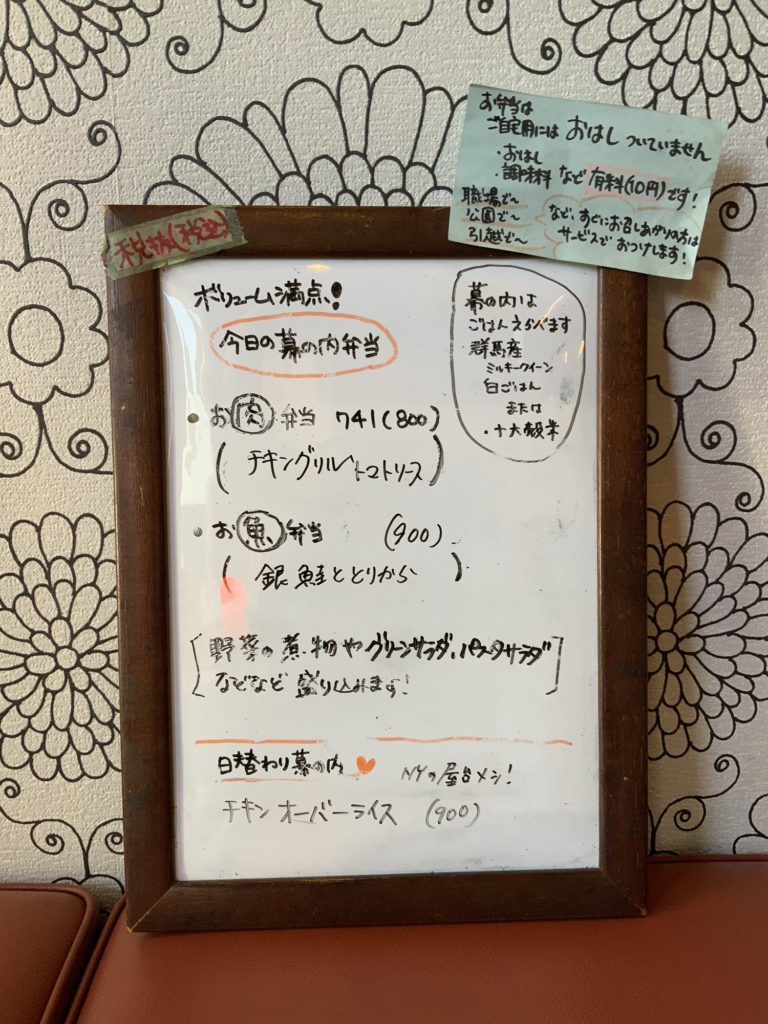 お弁当は
ご自宅用には おはし ついていません
・おはし
・調味料 など 有料(10円)です!
職場で〜
公園で〜
引越で〜
など、すぐにお召しあがりの方は
サービスで おつけします!
税抜(税込)
ボリューム満点!
今日の幕の内弁当
幕の内は
ごはんえらべます
群馬産
ミルキークイーン
白ごはん
または
・十六穀米
・お肉弁当 741(800)
(チキングリルトマトソース)
・お魚弁当 (900)
(銀鮭ととりから)
[野菜の煮物やグリーンサラダ、パスタサラダ
などなど 盛り込みます!]
日替わり幕の内♥ NYの屋台メシ!
チキンオーバーライス (900)